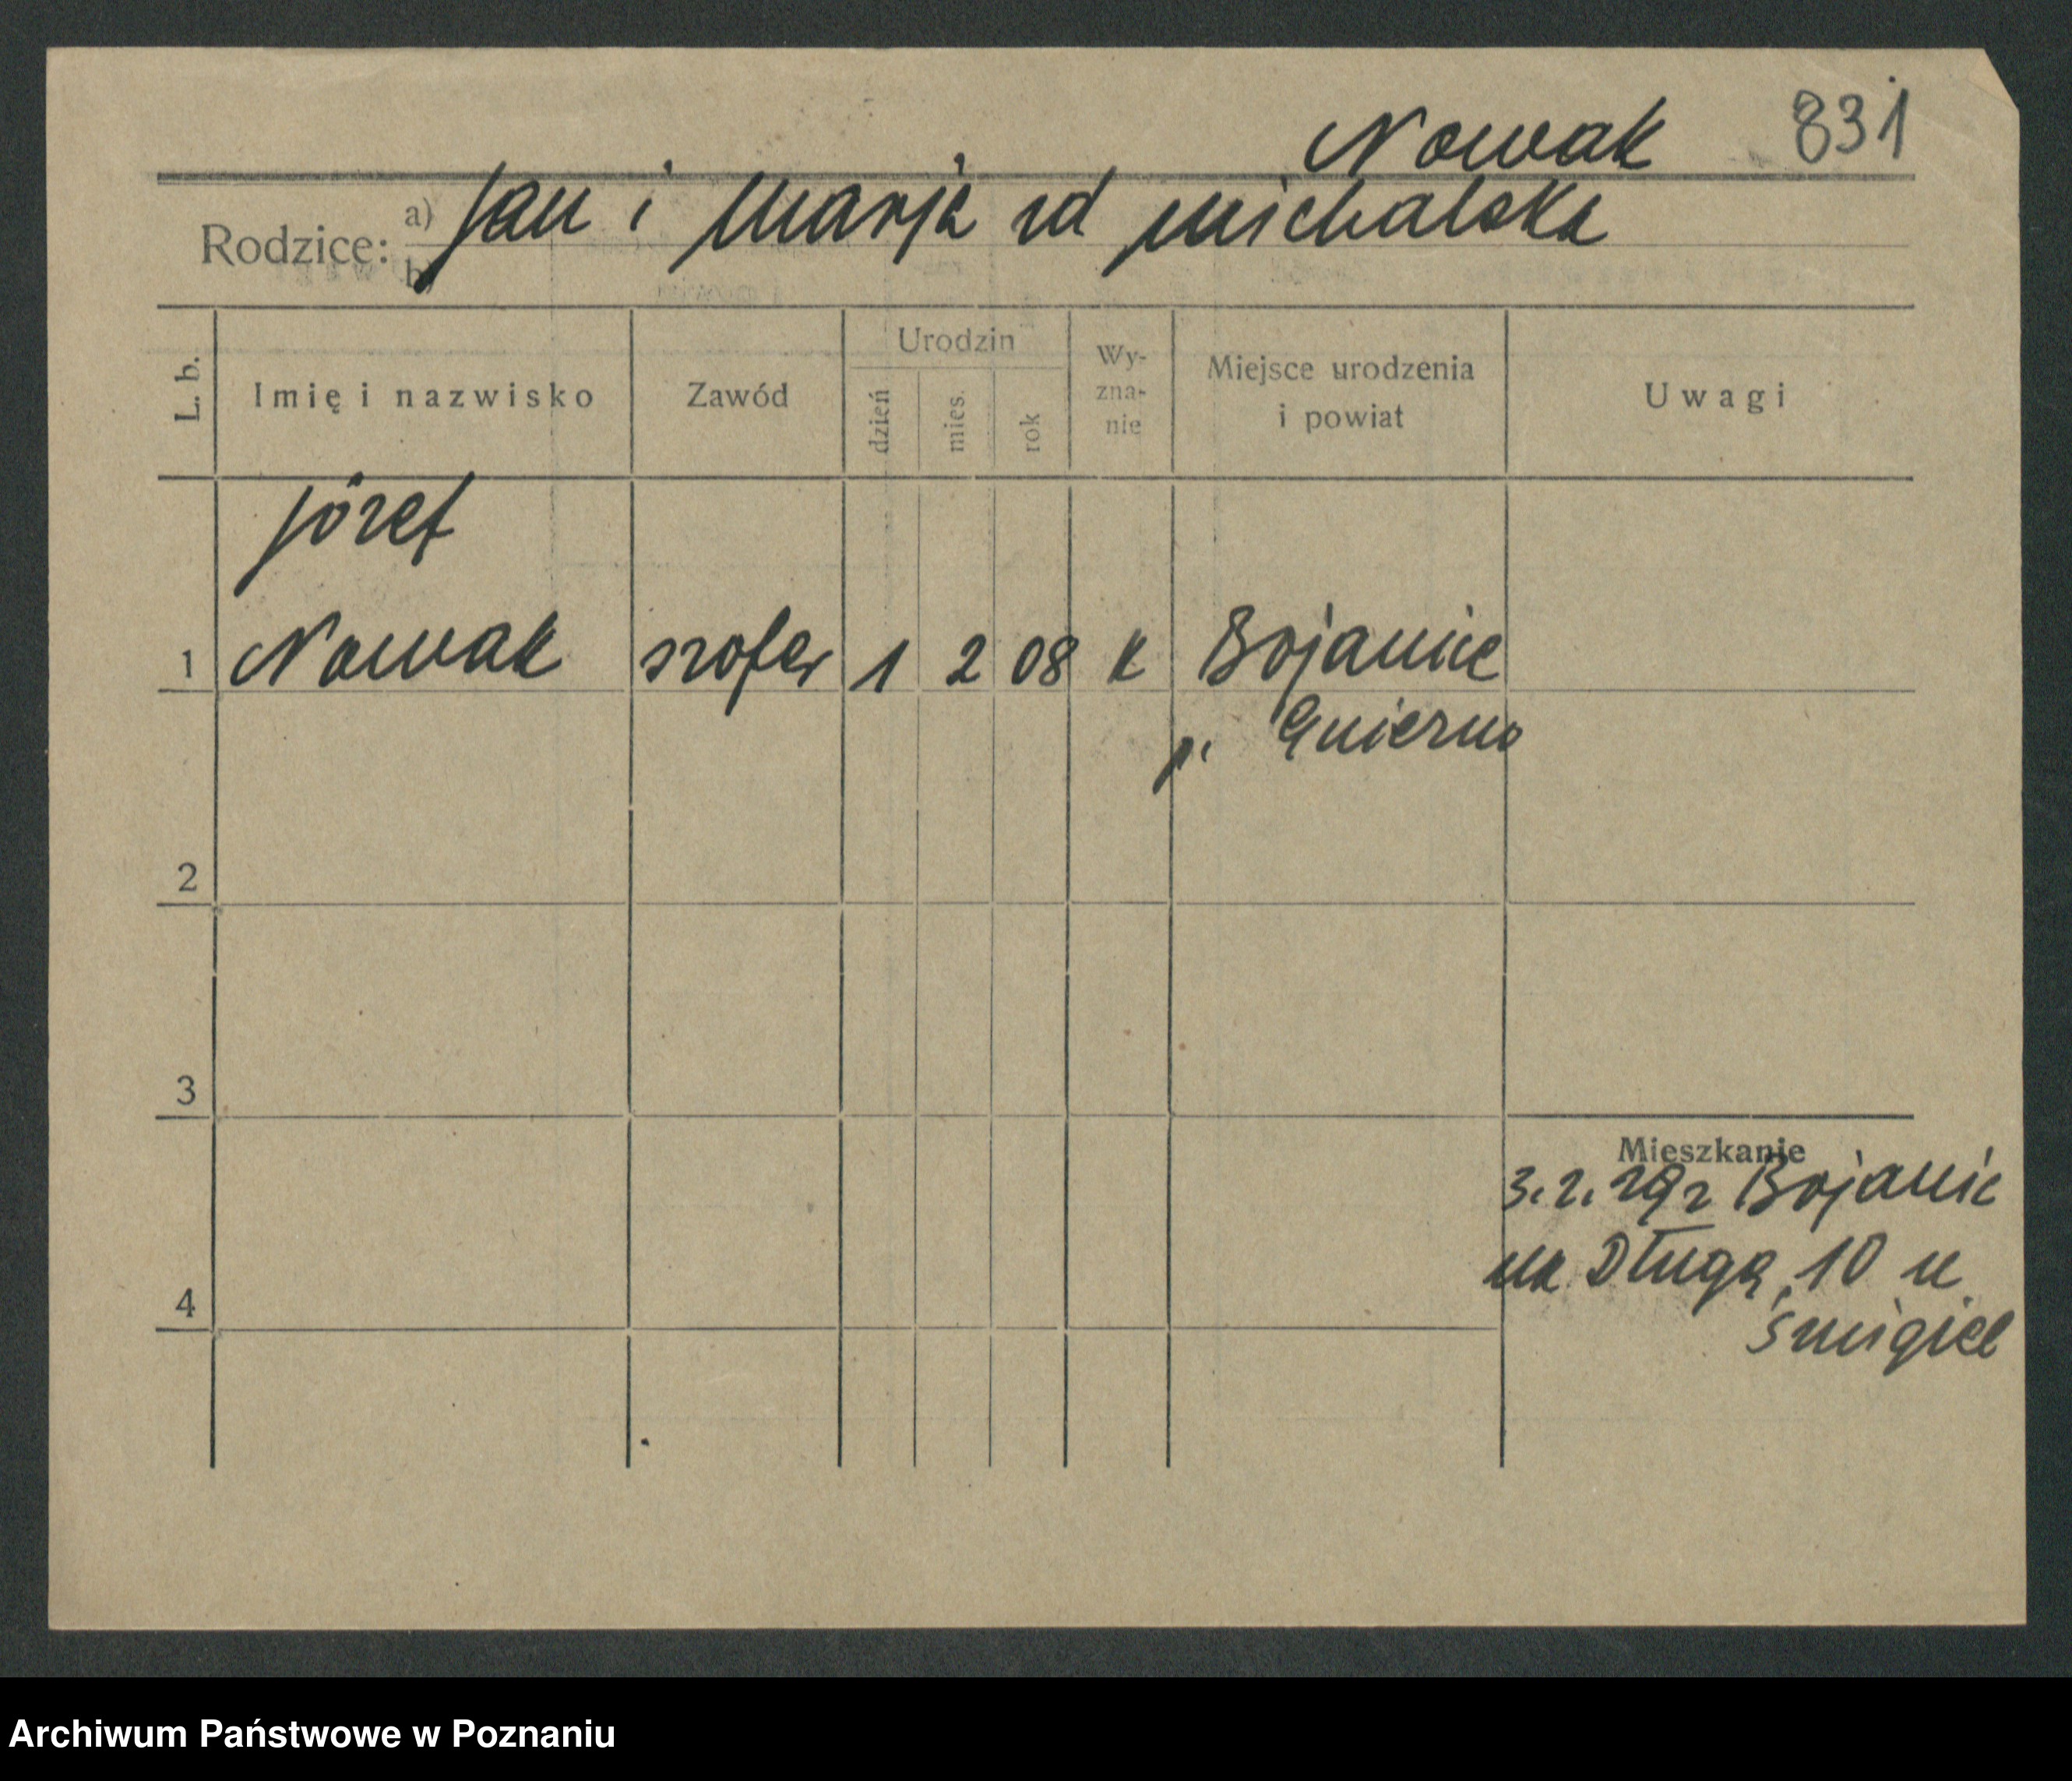 Nowak 831
Rodzice: a) Jan i Marja zd Michalska
b)
L. b. Imię i nazwisko Zawód Urodzin dzień mies. rok Wy-zna-nie Miejsce urodzenia i powiat Uwagi
Józef
1 Nowak szofer 1 2 08 K Bojanice
p. Gniezno
2
3
Mieszkanie
3.2.29 z Bojanic
na Długą 10 u
4
Śmigiel
Archiwum Państwowe w Poznaniu